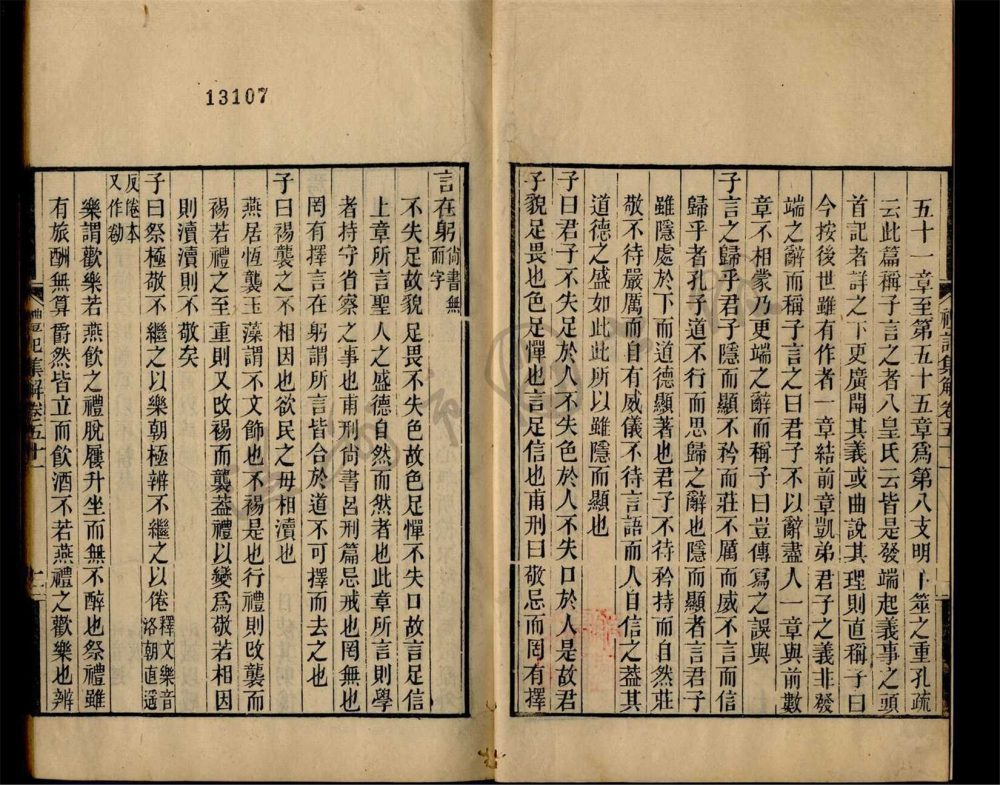 13107
五十一章至第五十五章爲第八支明卜筮之重孔疏
云此篇稱子言之者八皇氏云皆是發端起義事之頭
首記者詳之下更廣開其義或曲說其理則直稱子曰
今按後世雖有作者一章結前章凱弟君子之義非發
端之辭而稱子言之曰君子不以辭盡人一章與前數
章不相蒙乃更端之辭而稱子曰豈傳寫之誤與
子言之歸乎君子隱而顯不矜而莊不厲而威不言而信
歸乎者孔子道不行而思歸之辭也隱而顯者言君子
雖隱處於下而道德顯著也君子不待矜持而自然莊
敬不待嚴厲而自有威儀不待言語而人自信之蓋其
道德之盛如此此所以雖隱而顯也
子曰君子不失足於人不失色於人不失口於人是故君
子貌足畏也色足憚也言足信也甫刑曰敬忌而罔有擇
禮記集解卷五十一
言在躬尙書無而字
不失足故貌足畏不失色故色足憚不失口故言足信
上章所言聖人之盛德自然而然者也此章所言則學
者持守省察之事也甫刑尙書呂刑篇忌戒也罔無也
罔有擇言在躬謂所言皆合於道不可擇而去之也
子曰裼襲之不相因也欲民之毋相瀆也
燕居恆襲玉藻謂不文飾也不裼是也行禮則改襲而
裼若禮之至重則又改裼而襲蓋禮以變爲敬若相因
則瀆瀆則不敬矣
子曰祭極敬不繼之以樂朝極辨不繼之以倦釋文樂音洛朝直遥
反倦本又作勌
樂謂歡樂若燕飮之禮脫屨升坐而無不醉也祭禮雖
有旅酬無算爵然皆立而飮酒不若燕禮之歡樂也辨